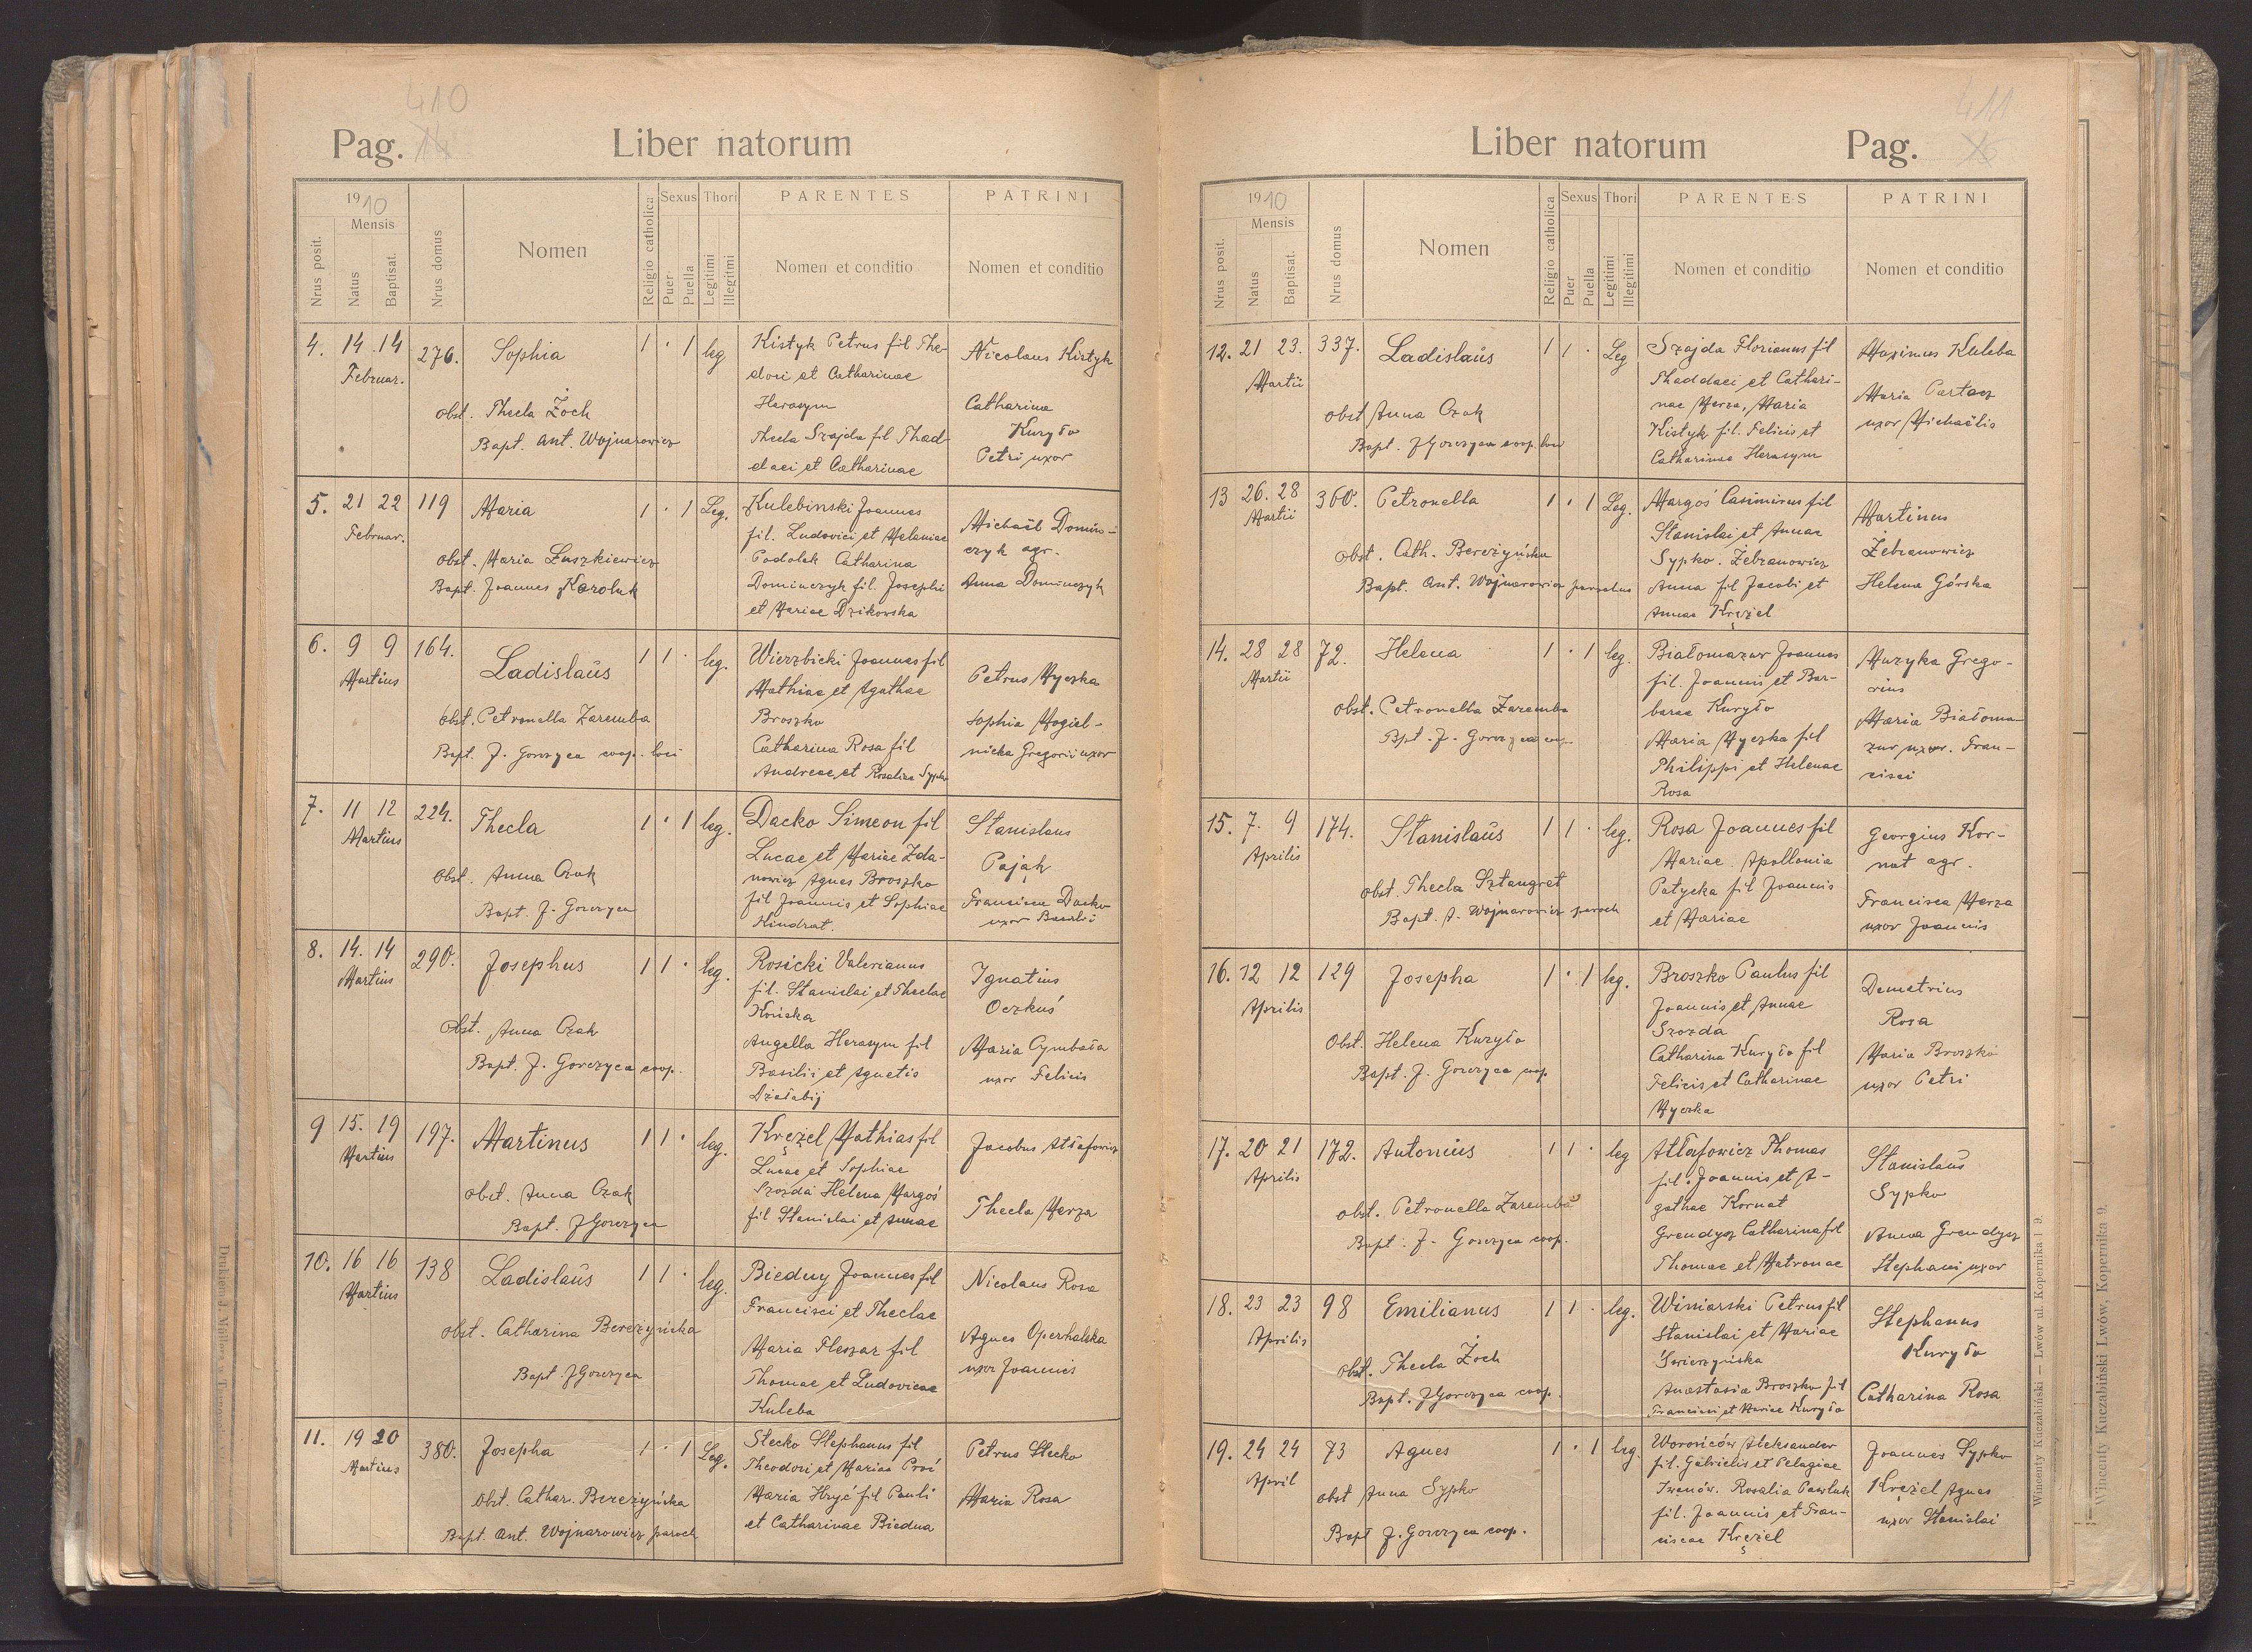 410
Pag. 14
Liber natorum
1910
Mensis
Nrus posit.
Natus
Baptisat.
Nrus domus
Nomen
Religio catholica
Sexus
Puer
Puella
Thori
Legitimi
Illegitmi
PARENTES
Nomen et conditio
PATRINI
Nomen et conditio
4. 14 14 276. Sophia 1 · 1 leg
Februar.
obst. Thecla Żoch
Bapt. Ant. Wojnarowicz
Kistyk Petrus fil The-
dori et Catharinae
Herasym
Thecla Szajda fil Thad-
daei et Catharinae
Nicolaus Kistyk
Catharina
Kuryło
Petri uxor
5. 21 22 119 Maria 1 · 1 Leg.
Februar.
obst. Maria Łuszkiewicz
Bapt. Joannes Karoluk
Kulebinski Joannes
fil. Ludovici et Melaniae
Podolak Catharina
Dominczyk fil. Josephi
et Mariae Dzikowska
Michaël Domin-
czyk agr.
Anna Dominczyk
6. 9 9 164. Ladislaŭs 1 1 · leg.
Martius
obst. Petronella Zaremba
Bapt. J. Gorczyca coop. loci
Wierzbicki Joannes fil
Mathiae et Agathae
Broszko
Catharina Rosa fil
Andreae et Rosaliae Sypko
Petrus Myczka
Sophia Mogiel-
nicka Gregorii uxor
7. 11 12 224. Thecla 1 · 1 leg.
Martius
Obst. Anna Czak
Bapt. J. Gorczyca
Dacko Simeon fil
Lucae et Mariae Zda-
nowicz Agnes Broszko
fil Joannis et Sophiae
Kindrat.
Stanislaus
Pająk
Francisca Dacko
uxor Basilii
8. 14. 14 290. Josephus 1 1 · leg.
Martius
Obst. Anna Czak
Bapt. J. Gorczyca coop.
Rosicki Valerianus
fil. Stanislai et Theclae
Końska
Angella Herasym fil
Basilii et Agnetis
Dziełabij
Ignatius
Oczkuś
Maria Cymbała
uxor Felicis
9 15. 19 197. Martinus 1 1 · leg.
Martius
obst. Anna Czak
Bapt. J Gorczyca
Krężel Mathias fil
Lucae et Sophiae
Szozda Helena Margoś
fil Stanislai et Annae
Jacobus Atłafowicz
Thecla Merza
10. 16 16 138 Ladislaŭs 1 1 · leg.
Martius
obst. Catharina Bereżyńska
Bapt J Gorczyca
Biedny Joannes fil
Francisci et Theclae
Maria Fleszar fil
Thomae et Ludovicae
Kuleba
Nicolaus Rosa
Agnes Operhalska
uxor Joannis
11. 19 20 380. Josepha 1 · 1 Leg.
Martius
Obst. Cathar. Bereżyńska
Bapt. Ant. Wojnarowicz paroch
Stecko Stephanus fil
Theodori et Mariae Proś
Maria Hryć fil Pauli
et Catharinae Biedna
Petrus Stecko
Maria Rosa
411
Liber natorum
Pag. 15
1910
Mensis
Nrus posit.
Natus
Baptisat.
Nrus domus
Nomen
Religio catholica
Sexus
Puer
Puella
Thori
Legitimi
Illegitimi
PARENTES
Nomen et conditio
PATRINI
Nomen et conditio
12. 21 23. 337. Ladislaŭs 1 1 · Leg
Martii
obst Anna Czak
Bapt. J Gorczyca coop. loci
Szajda Florianus fil
Thaddaei et Cathari-
nae Merza, Maria
Kistyk fil. Felicis et
Catharinae Herasym
Maximus Kuleba
Maria Partacz
uxor Michaëlis
13 26. 28 360. Petronella 1 · 1 Leg.
Martii
obst. Cath. Bereżyńska
Bapt. Ant. Wojnarowicz parochus
Margoś Casimirus fil
Stanislai et Annae
Sypko. Żebranowicz
Anna fil Jacobi et
Annae Krężel
Martinus
Żebranowicz
Helena Górska
14. 28 28 72. Helena 1 · 1 leg.
Martii
obst. Petronella Zaremba
Bpt. J. Gorczyca coop.
Białomazur Joannes
fil. Joannis et Bar-
barae Kuryło
Maria Myczka fil
Philippi et Helenae
Rosa
Muzyka Grego-
rius
Maria Białoma-
zur uxor. Fran-
cisci
15. 7. 9 174. Stanislaŭs 1 1 · leg.
Aprilis
obst. Thecla Sztangret
Bapt. A. Wojnarowicz paroch
Rosa Joannes fil
Mariae. Apollonia
Patycka fil Joannis
et Mariae
Georgius Kor-
nat agr.
Francisca Merza
uxor Joannis
16. 12 12 129 Josepha 1 · 1 leg.
Aprilis
Obst. Helena Kuryło
Bapt. J. Gorczyca coop
Broszko Paulus fil
Joannis et Annae
Szozda
Catharina Kuryło fil
Felicis et Catharinae
Myczka
Demetrius
Rosa
Maria Broszko
uxor Petri
17. 20 21 172. Antonius 1 1 · leg
Aprilis
obst. Petronella Zaremba
Bapt. J. Gorczyca coop.
Atłafowicz Thomas
fil. Joannis et A-
gathae Kornat
Grendysz Catharina fil
Thomae et Matronae
Stanislaŭs
Sypko
Anna Grendysz
Stephani uxor
18. 23 23 98 Emilianus 1 1 · leg.
Aprilis
obst. Thecla Żoch
Bapt. J Gorczyca coop.
Winiarski Petrus fil
Stanislai et Mariae
Świerzyńska
Anastasia Broszko fil
Francisci et Mariae Kuryło
Stephanus
Kuryło
Catharina Rosa
19. 24 24 73 Agnes 1 · 1 leg.
April
obst Anna Sypko
Bapt J. Gorczyca coop.
Worosiców Aleksander
fil. Gabrielis et Pelagiae
Iwanów. Rosalia Pawluk
fil. Joannis et Fran-
ciscae Krężel
Joannes Sypko
Krężel Agnes
uxor Stanislai
Wincenty Kuczabiński — Lwów ul. Kopernika l 9.
Wincenty Kuczabiński Lwów, Kopernika 9.